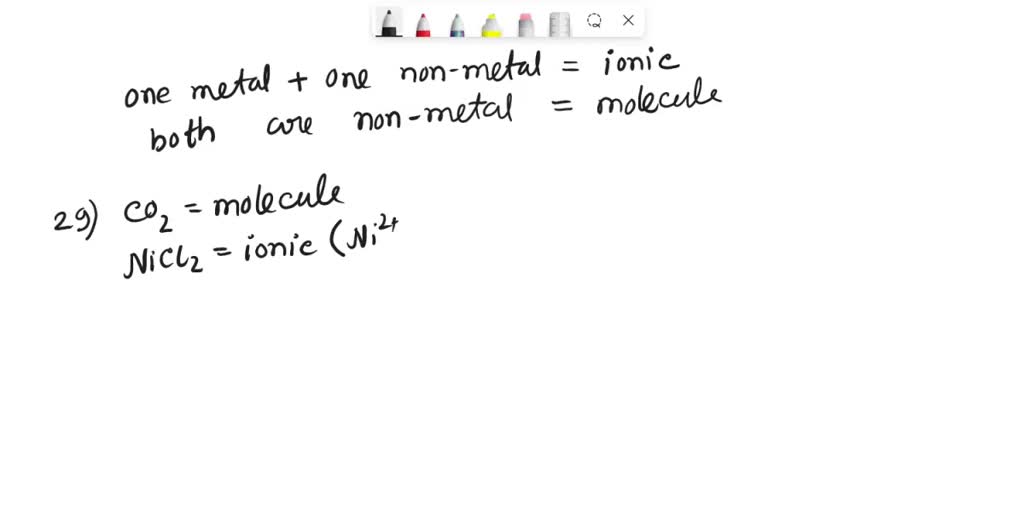 one metal + one non-metal = ionic
both are non-metal = molecule
29) CO₂ = molecule
NiCl₂ = ionic (Ni²⁺